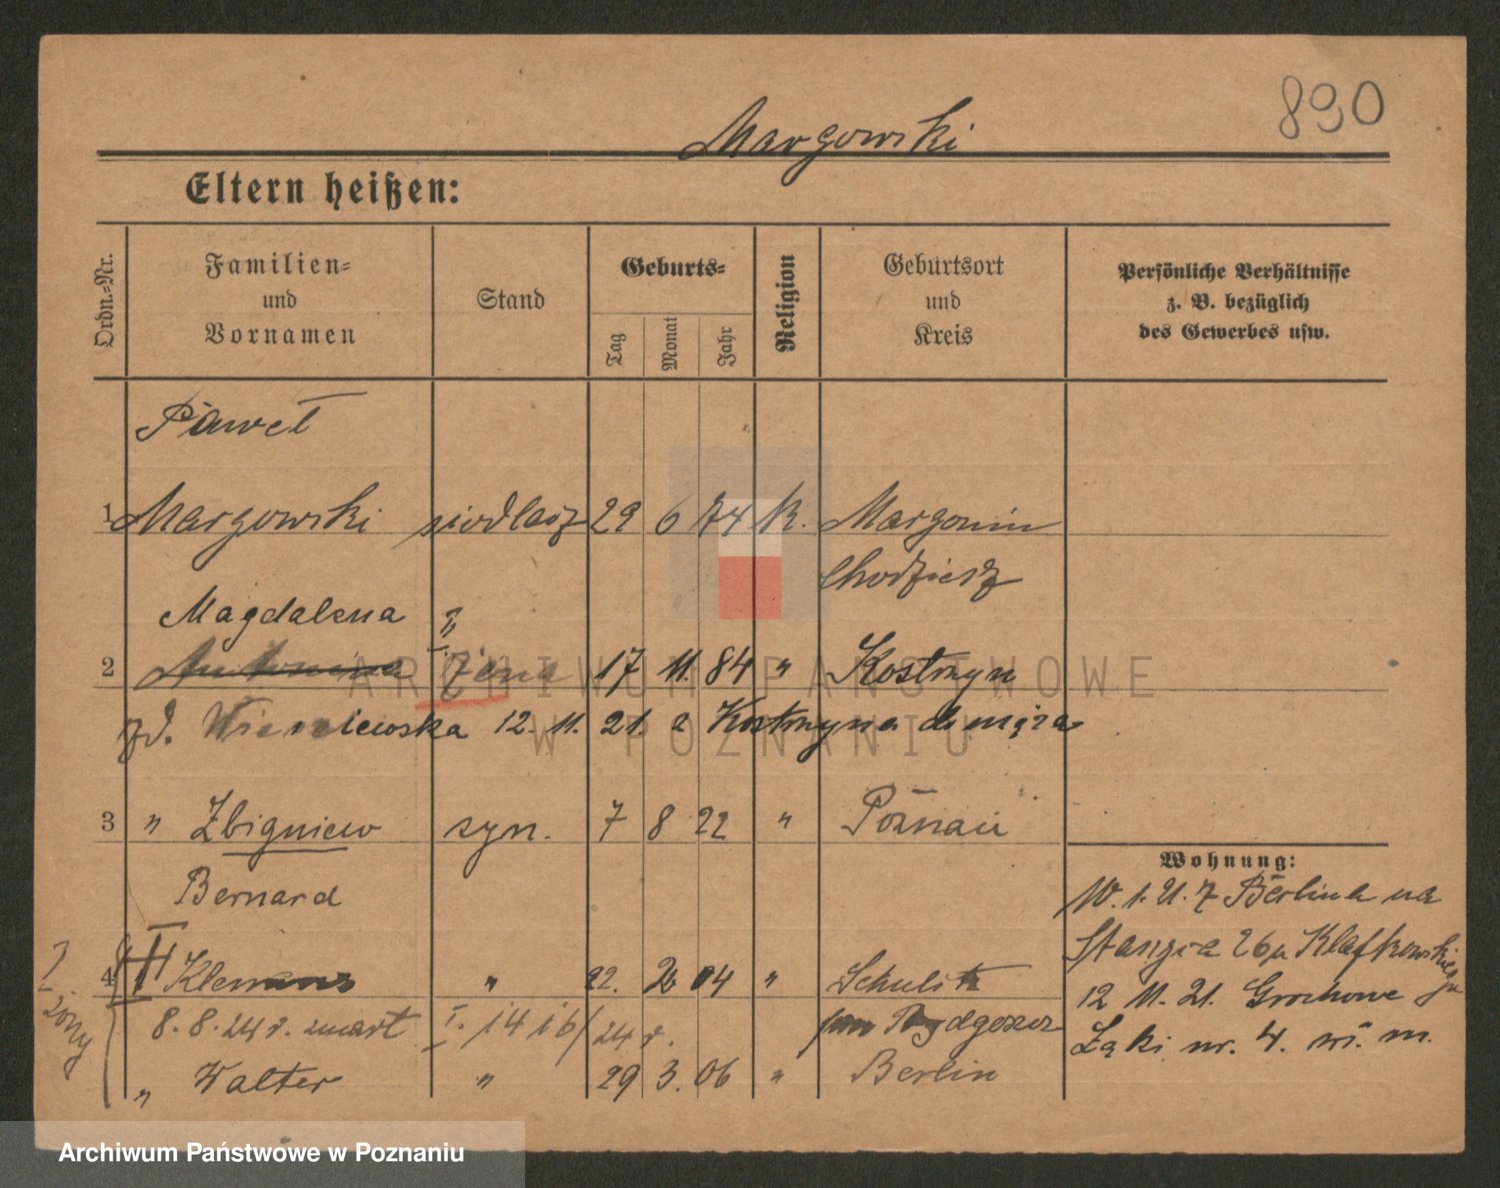 890
Margowski
Eltern heißen:
Ordn.-Nr.
Familien- und Vornamen
Stand
Geburts-
Tag
Monat
Jahr
Religion
Geburtsort und Kreis
Persönliche Verhältnisse z. B. bezüglich des Gewerbes usw.
Paweł
1 Margowski siodlarz 29 6 74 K. Margonin
Chodzież
Magdalena "
2 Antonina żona 17 11. 84 " Kostrzyn
zd. 12. 11. 21. z Kostrzyna do męża
3 " Zbigniew syn. 7 8 22 " Poznań
Bernard
4 II Klemens " 22. 04 " Schulitz
8. 8. 24 r. zmarł I. 1416/24 r. Bydgoszcz
" Walter " 29 3. 06 " Berlin
I żony
Wohnung:
W. 1. 21. z Berlina na
26 u Klafkowskiego
12 11. 21. Grochowe
Łąki nr. 4. m.
ARCHIWUM PAŃSTWOWE
W POZNANIU
Archiwum Państwowe w Poznaniu